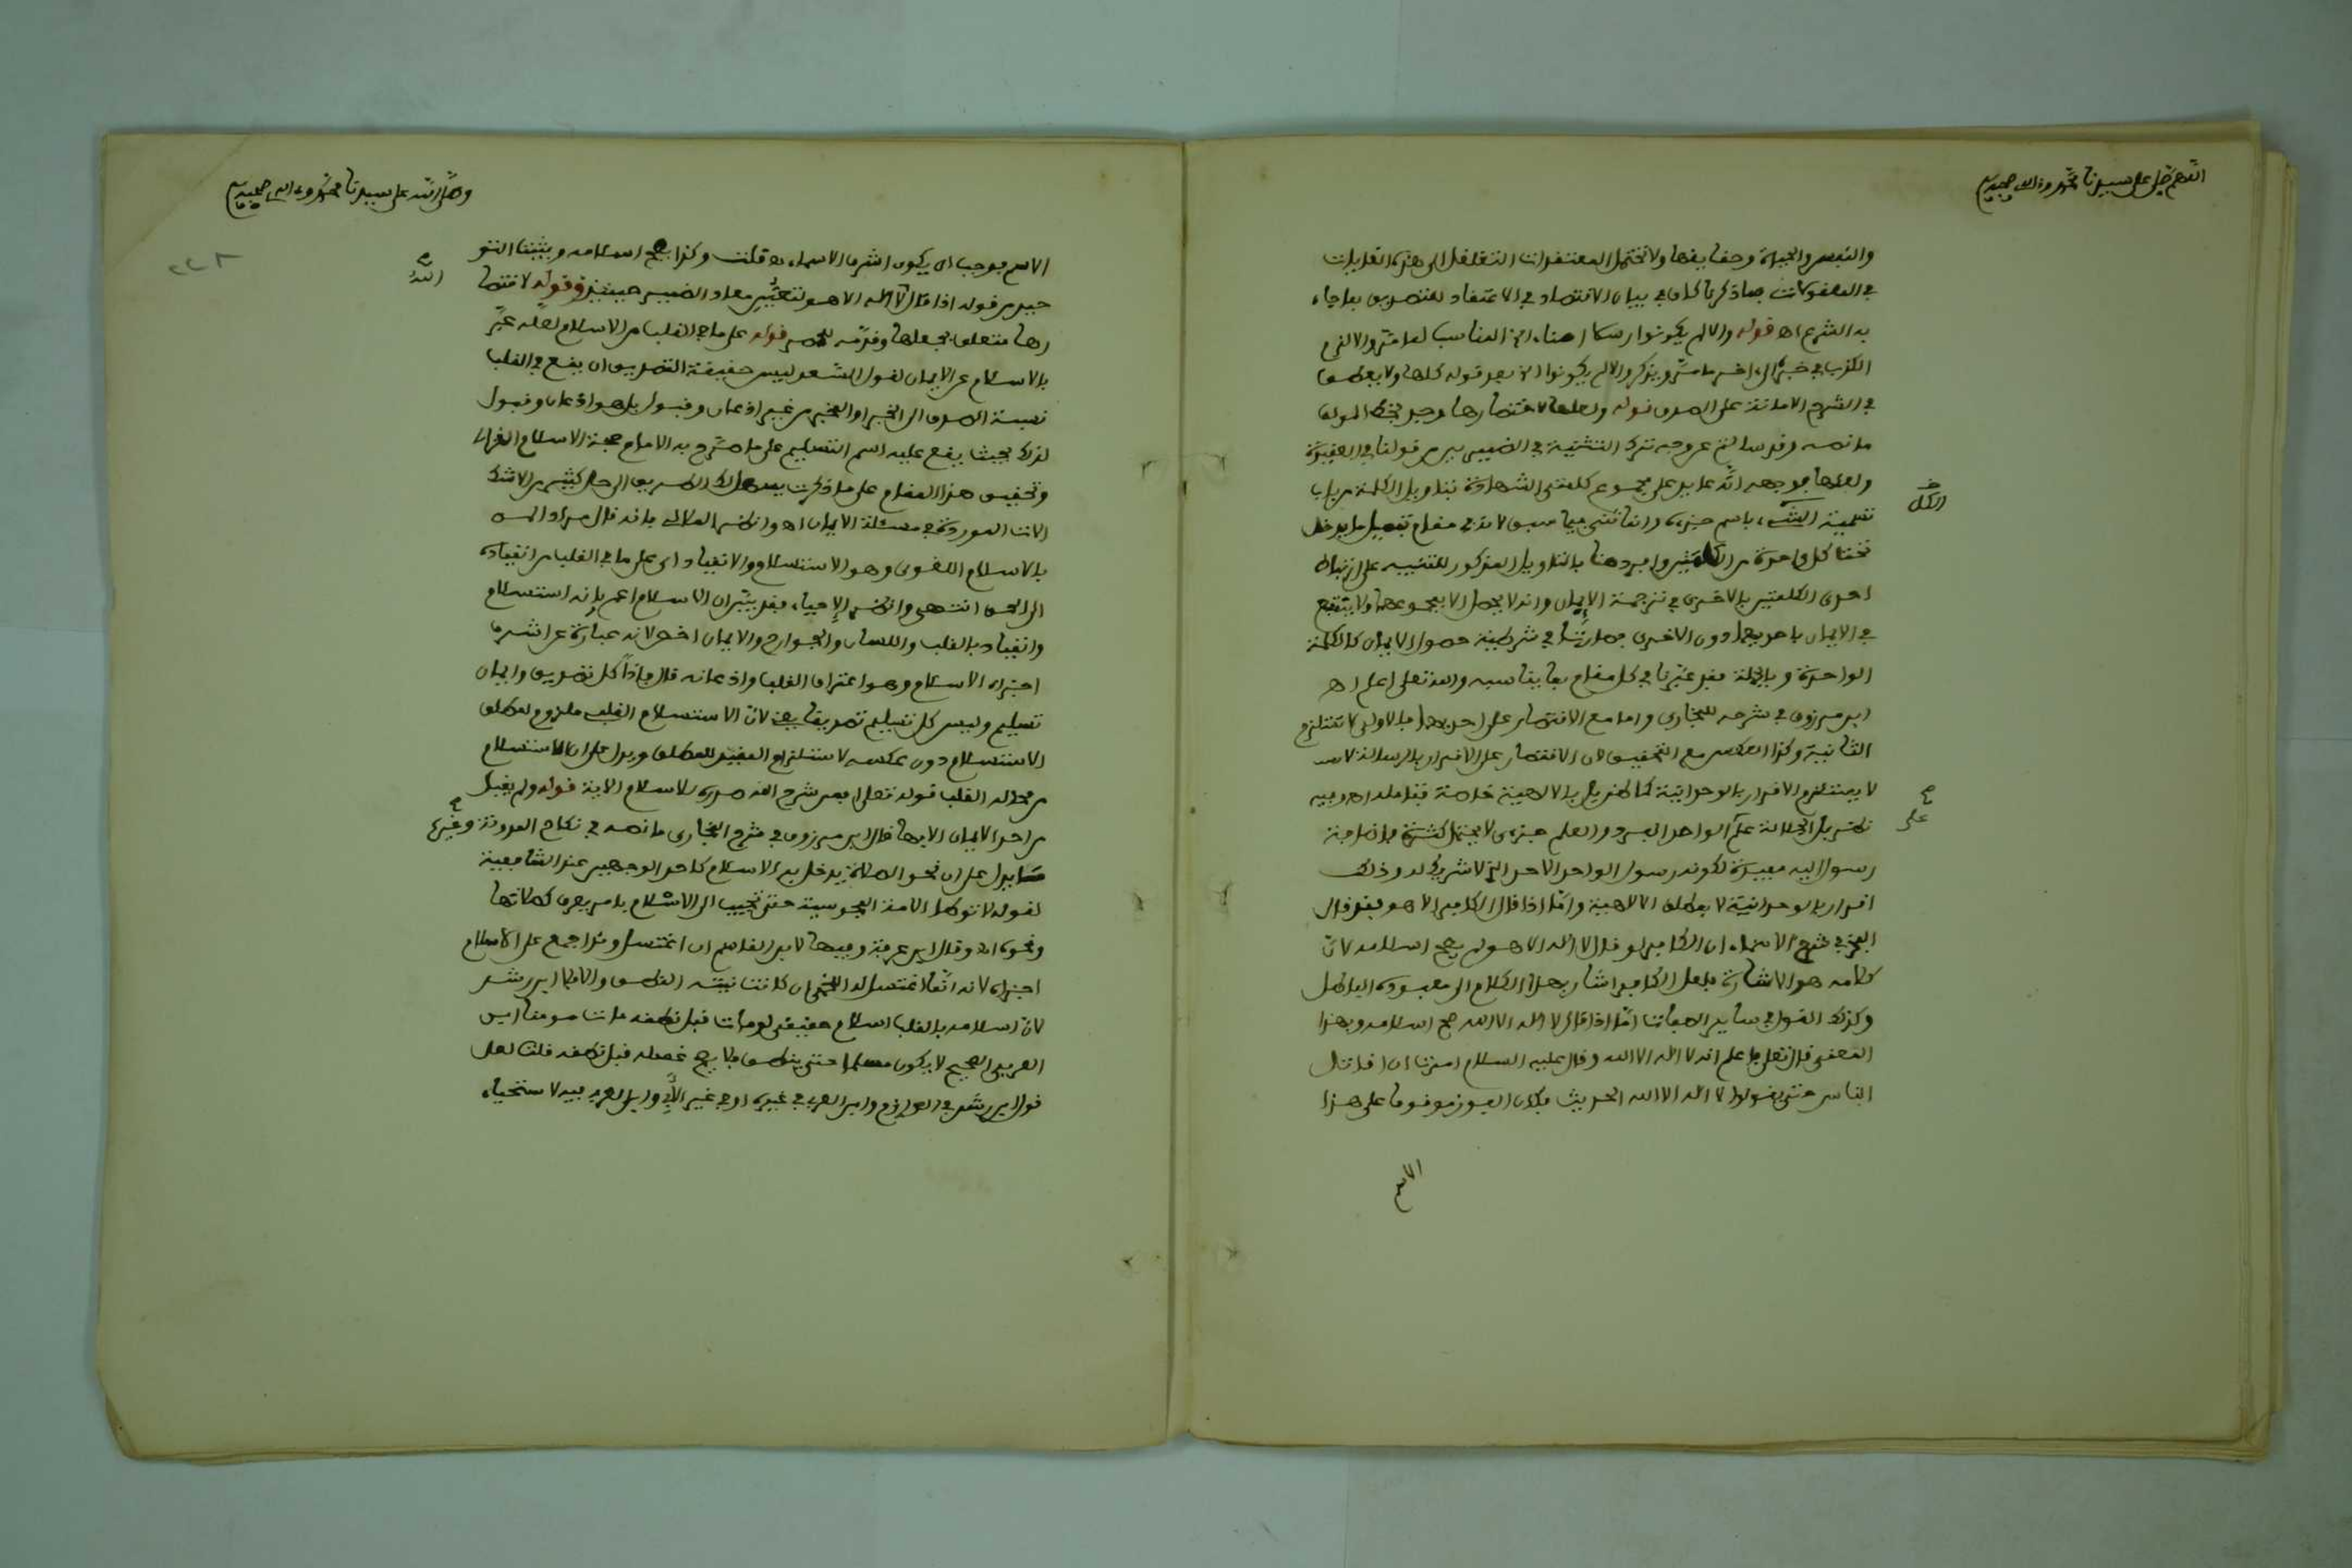 اللهم صل على سيدنا محمد وءاله وصحبه
والنفس والحياة وحقايقها ولا تحتمل المعتقدات التغلغل الى هذه
في المعقولات بما ذكرناه كاف في بيان الاقتصاد في الاعتقاد
به الشرع اه قوله والا لم يكونوا رسلا امناء
الكذب في خبره
في الشرح الامانة على الصدق قوله ولعلها لاختصارها وجد بخط المولف
ما نصه وقد سالت عن وجه ترك التثنية في الضميرين من قولنا في العقيدة
ولعلها فوجهه انه عايد على مجموع كلمتي الشهادة بتاويل الكلمة من باب
تسمية الشيء باسم جزءه وانما ثنى فيما سبق لانه في مقام تفصيل ما يدخل
الكل
تحت كل واحدة من الكلمتين وافردهنا بالتاويل المذكور للتنبيه على ارتباط
احدى الكلمتين بالاخرى في ترجمة الايمان وانه لا يحصل الا بمجموعهما ولا ينتفع
في الايمان باحديهما دون الاخرى فصارتا في شرطية حصول الايمان كالكلمة
الواحدة وبالجملة فقد عبرنا في كل مقام بما يناسبه والله تعلى اعلم اه
ابن مرزوق في شرحه للبخاري واما مع الاقتصار على احديهما فالاولى لا تستلزم
الثانية وكذا العكس مع التحقيق لان الاقتصار على الاقرار بالرسالة لله
لا يستلزم الاقرار بالوحدانية كما لم يقل بالالاهية خاصة فتامله اه وفيه
على
نظر بل الجلالة علم الواحد الفرد والعلم جزءى لا يحتمل كثرة فاضافة
رسول اليه مفيدة لكونه رسول الواحد الاحد الذي لا شريك له وذلك
اقرار بالوحدانية لا بمطلق الالاهية واما اذا قال الكافر الا هو فقد قال
الفخر في شرح الاسماء ان الكافر لو قال لا اله الا هو لم يصح اسلامه لان
كلامه هو الاشارة فلعل الكافر اشار بهذا الكلام الى معبوده الباطل
وكذلك القول في ساير الصفات اما اذا قال لا اله الا الله صح اسلامه وبهذا
المعنى قال تعلى فاعلم انه لا اله الا الله وقال عليه السلام امرت ان اقاتل
الناس حتى يقولوا لا اله الا الله الحديث فكان الفوز موقوفا على هذا
الاسم
وصلى الله على سيدنا محمد وءاله وصحبه
٢٢٨
الاسم فوجب ان يكون اشرف الاسماء اه قلت وكذا يصح اسلامه
الله
حيد من قوله اذا قال لا اله الا هو لتعين معاد الضمير حينئذ وقوله لاختصا
رها متعلق بجعلها وقدمه للحصر قوله على ما في القلب من الاسلام لعله عبر
بالاسلام عن الايمان لقول السعد ليس حقيقة التصديق ان يقع في القلب
نسبة الصدق الى الخبر او المخبر من غير اذعان وقبول بل هو اذعان وقبول
لذلك بحيث يقع عليه اسم التسليم على ما صرح به الامام حجة الاسلام الغزالي
وتحقيق هذا المقام على ما ذكرت يسهل لك الطريق الى حل كثير من الاشكا
لات الموردة في مسئلة الايمان اه
بالاسلام اللغوي وهو الاستسلام والانقياد اى على ما في القلب من انقياده
الى الحق انتهى وانظر الاحياء فقد بين ان الاسلام اعم بانه استسلام
وانقياد بالقلب واللسان والجوارح والايمان اخص لانه عبارة عن اشرف
اجزاء الاسلام وهو اعتراف القلب واذعانه قال فاذا كل تصديق وايمان
تسليم وليس كل تسليم تصديقا يعني لان الاستسلام القلب ملزوم لمطلق
الاستسلام دون عكسه لاستلزام المقيد للمطلق ويدل على ان الاستسلام
من محاله القلب قوله تعلى افمن شرح الله صدره للاسلام الاية قوله ولم يقبل
من احد الايمان الا بها قال ابن مرزوق في شرح البخاري ما نصه في نكاح المدونة وغيرها
ما يدل على ان نحو الصلاة يدخل به الاسلام كاحد الوجهين عند الشافعية
لقوله لا توطا الامة المجوسية حتى تجيب الى الاسلام بامر يعرف كصلاتها
ونحوه اه وقال ابن عرفة وفيها لابن القاسم ان اغتسل وقد اجمع على الاسلام
اجزاه لانه انما اغتسل له اللخمي ان كانت نيته النطق والا فلا ابن رشد
لان اسلامه بالقلب اسلام حقيقي لو مات قبل نطقه مات مومنا ابن
العربي الصحيح لا يكون مسلما حتى ينطق فلا يصح غسله قبل نطقه قلت لعل
قول ابن رشد في العازم وابن العربي في غيره او في غير الابي وابن العربي فيه لاستحياء